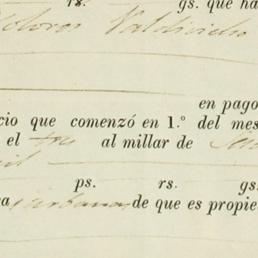 rs. gs. que ha
Dolores Valdivieho
en pago
cio que comenzó en 1.° del mes
el tres al millar de
ps. rs. gs.
a urbana de que es propie